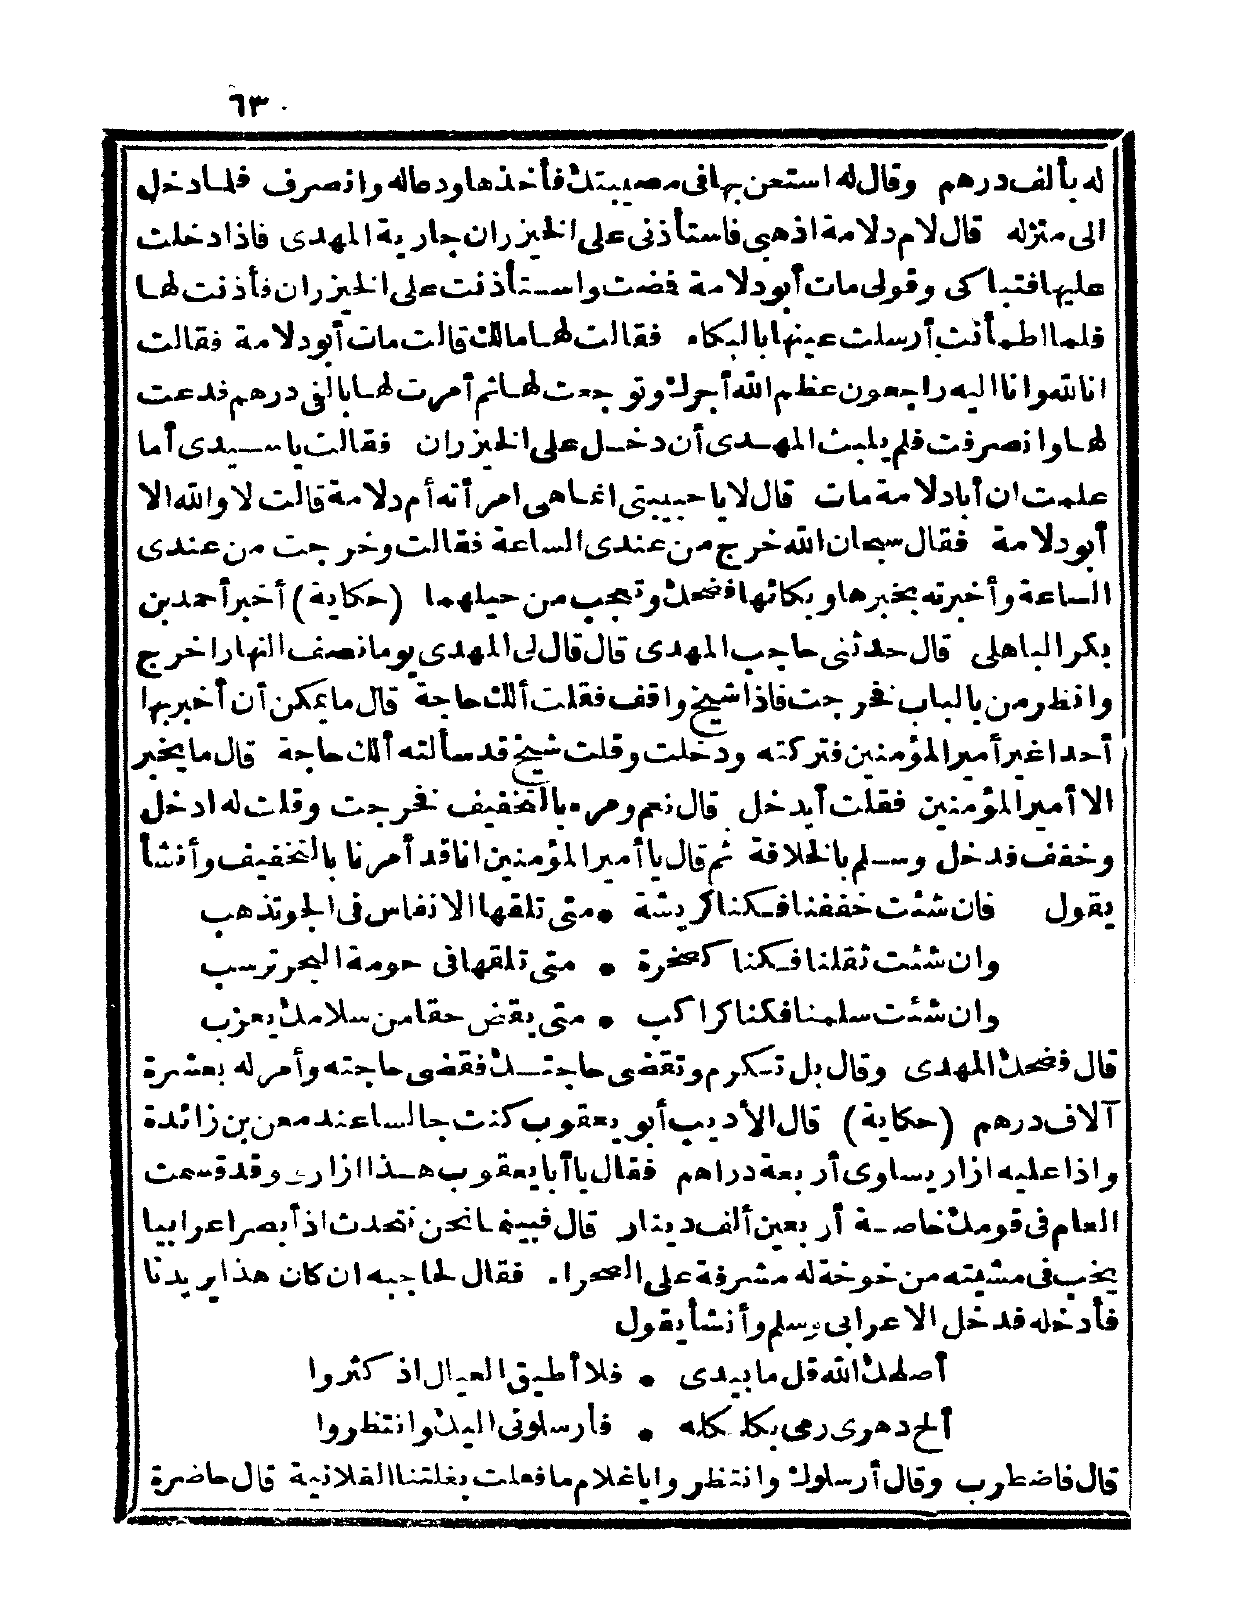 ٦٣
له بألف درهم وقال له استعن بها فى مصيبتك فأخذها ودعاله وانصرف فلما دخل
الى منزله قال لام دلامة اذهبى فاستأذنى على الخيزران جارية المهدى فاذا دخلت
عليها فتباكى وقولى مات أبو دلامة فضت واستأذنت على الخيزران فأذنت لها
فلما اطمأنت أرسلت عينها بالبكاء فقالت لها مالك قالت مات أبو دلامة فقالت
انا لله وانا اليه راجعون عظم الله أجرك وتوجعت لها ثم أمرت لها بالفى درهم فدعت
لها وانصرفت فلم يلبث المهدى أن دخل على الخيزران فقالت يا سيدى أما
علمت ان أبا دلامة مات قال لا يا حبيبتى انما هى امرأته أم دلامة قالت لا والله الا
أبو دلامة فقال سبحان الله خرج من عندى الساعة فقالت وخرجت من عندى
الساعة وأخبرته بخبرها وبكائها فضحك وتعجب من حيلهما (حكاية) أخبر أحمد بن
بكر الباهلى قال حدثنى حاجب المهدى قال قال لى المهدى يوما نصف النهار اخرج
وانظر من بالباب فخرجت فاذا شيخ واقف فقلت ألك حاجة قال ما يمكن أن أخبر بها
أحدا غير أمير المؤمنين فتركته ودخلت وقلت شيخ قد سألته ألك حاجة قال ما يخبر
الا أمير المؤمنين فقلت أيدخل قال نعم ومره بالتخفيف فخرجت وقلت له ادخل
وخفف فدخل وسلم بالخلافة ثم قال يا أمير المؤمنين انا قد أمرنا بالتخفيف وأنشأ
يقول فان شئت خففنا فكنا كريشة • متى تلقها الانفاس فى الجو تذهب
وان شئت ثقلنا فكنا كصخرة • متى تلقها فى حومة البحر ترسب
وان شئت سلمنا فكنا كراكب • متى يقض حقا من سلامك يعزب
قال فضحك المهدى وقال بل تكرم وتقضى حاجتك فقضى حاجته وأمر له بعشرة
آلاف درهم (حكاية) قال الأديب أبو يعقوب كنت جالسا عند معن بن زائدة
واذا عليه ازار يساوى أربعة دراهم فقال يا أبا يعقوب هذا ازارى وقد قسمت
العام فى قومك خاصة أربعين ألف دينار قال فبينما نحن نتحدث اذ أبصر اعرابيا
يخب فى مشيته من خوخة له مشرفة على الصحراء فقال لحاجبه ان كان هذا يريدنا
فأدخله فدخل الاعرابى وسلم وأنشأ يقول
أصلحك الله قل ما بيدى • فلا أطيق العيال اذ كثروا
الح دهرى رمى بكلكله • فأرسلونى اليك وانتظروا
قال فاضطرب وقال أرسلوك وانتظروا يا غلام ما فعلت بغلتنا الفلانية قال حاضرة